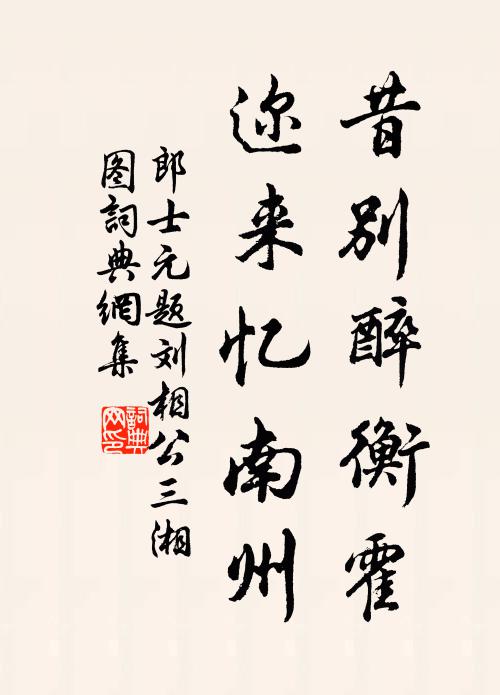 昔别醉衡霍
迩来忆南州
郎士元题刘相公三湘
图詞典網集
詞典网印